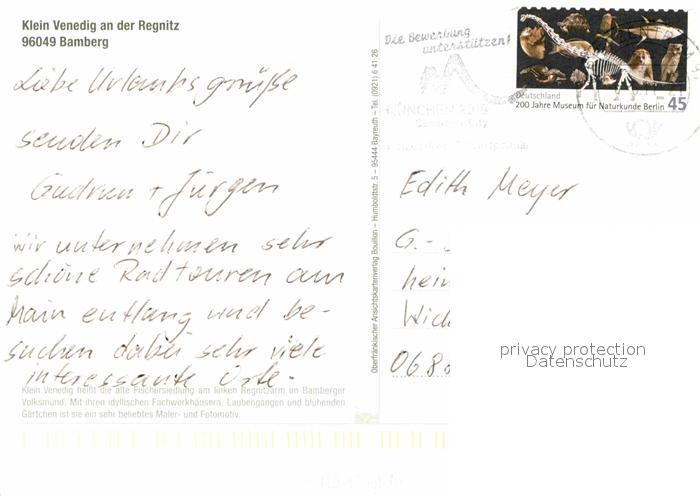 Klein Venedig an der Regnitz
96049 Bamberg
Liebe Urlaubsgrüße
senden Dir
Gudrun + Jürgen
wir unternehmen sehr
schöne Radtouren am
Main entlang und be-
suchen dabei sehr viele
interessante Orte-
Klein Venedig heißt die alte Fischersiedlung am linken Regnitzarm im Bamberger
Volksmund. Mit ihren idyllischen Fachwerkhäusern, Laubengängen und blühenden
Gärtchen ist sie ein sehr beliebtes Maler- und Fotomotiv.
Oberfränkischer Ansichtskartenverlag Bouillon – Humboldtstr. 5 – 95444 Bayreuth – Tel. (0921) 6 41 26
Die Bewerbung
unterstützen!
MÜNCHEN 2018
Deutschland
200 Jahre Museum für Naturkunde Berlin 45
Edith Meyer
G.-
hein
Wich
068
privacy protection
Datenschutz